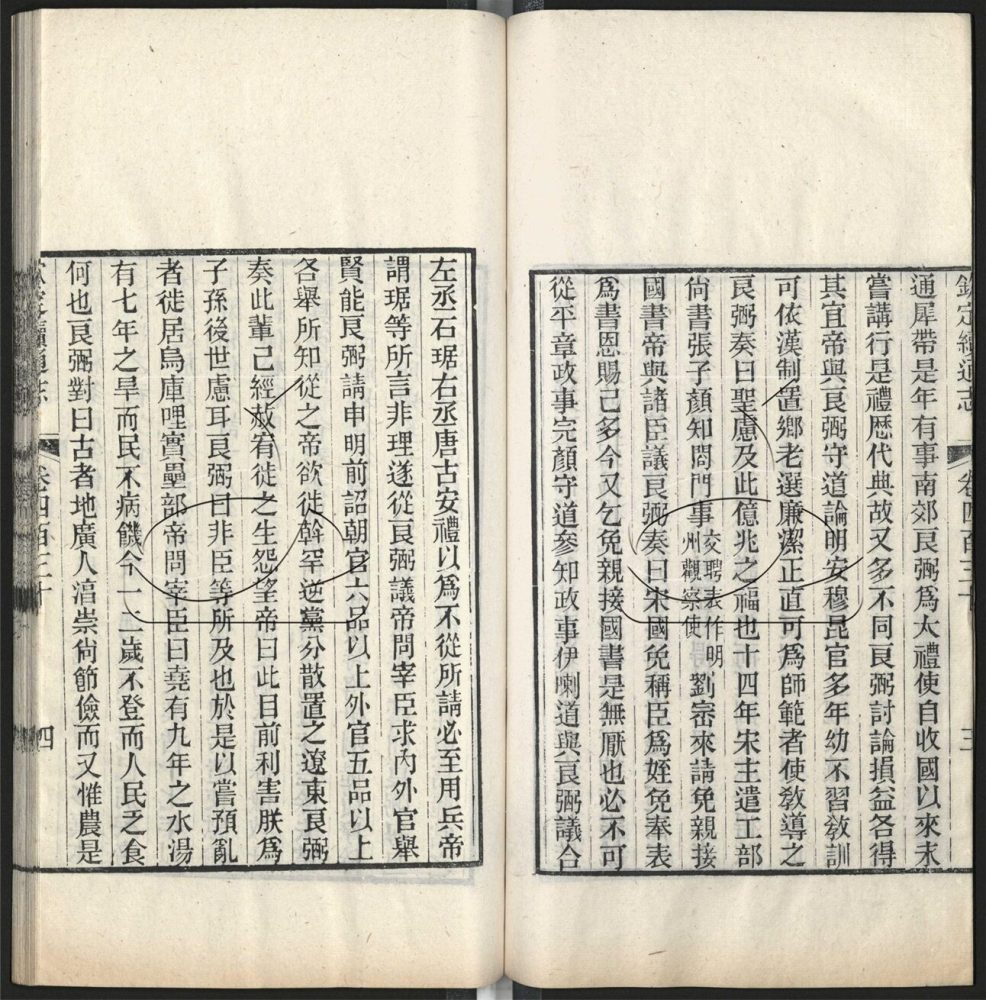 欽定續通志 卷四百三十 三
通犀帶是年有事南郊良弼爲大禮使自收國以來未
嘗講行是禮歷代典故又多不同良弼討論損益各得
其宜帝與良弼守道論明安穆昆官多年幼不習敎訓
可依漢制置鄉老選廉潔正直可爲師範者使敎導之
良弼奏曰聖慮及此億兆之福也十四年宋主遣工部
尙書張子顏知閤門事交聘表作明州觀察使劉密來請免親接
國書帝與諸臣議良弼奏曰宋國免稱臣爲姪免奉表
爲書恩賜已多今又乞免親接國書是無厭也必不可
從平章政事完顏守道參知政事伊喇道與良弼議合
左丞石琚右丞唐古安禮以爲不從所請必至用兵帝
謂琚等所言非理遂從良弼議帝問宰臣求內外官舉
賢能良弼請申明前詔朝官六品以上外官五品以上
各舉所知從之帝欲徙斡罕逆黨分散置之遼東良弼
奏此輩已經赦宥徙之生怨望帝曰此目前利害朕爲
子孫後世慮耳良弼曰非臣等所及也於是以嘗預亂
者徙居烏庫哩實壘部帝問宰臣曰堯有九年之水湯
有七年之旱而民不病饑今一二歲不登而人民乏食
何也良弼對曰古者地廣人湻崇尙節儉而又惟農是
欽定續通志 卷四百三十 四